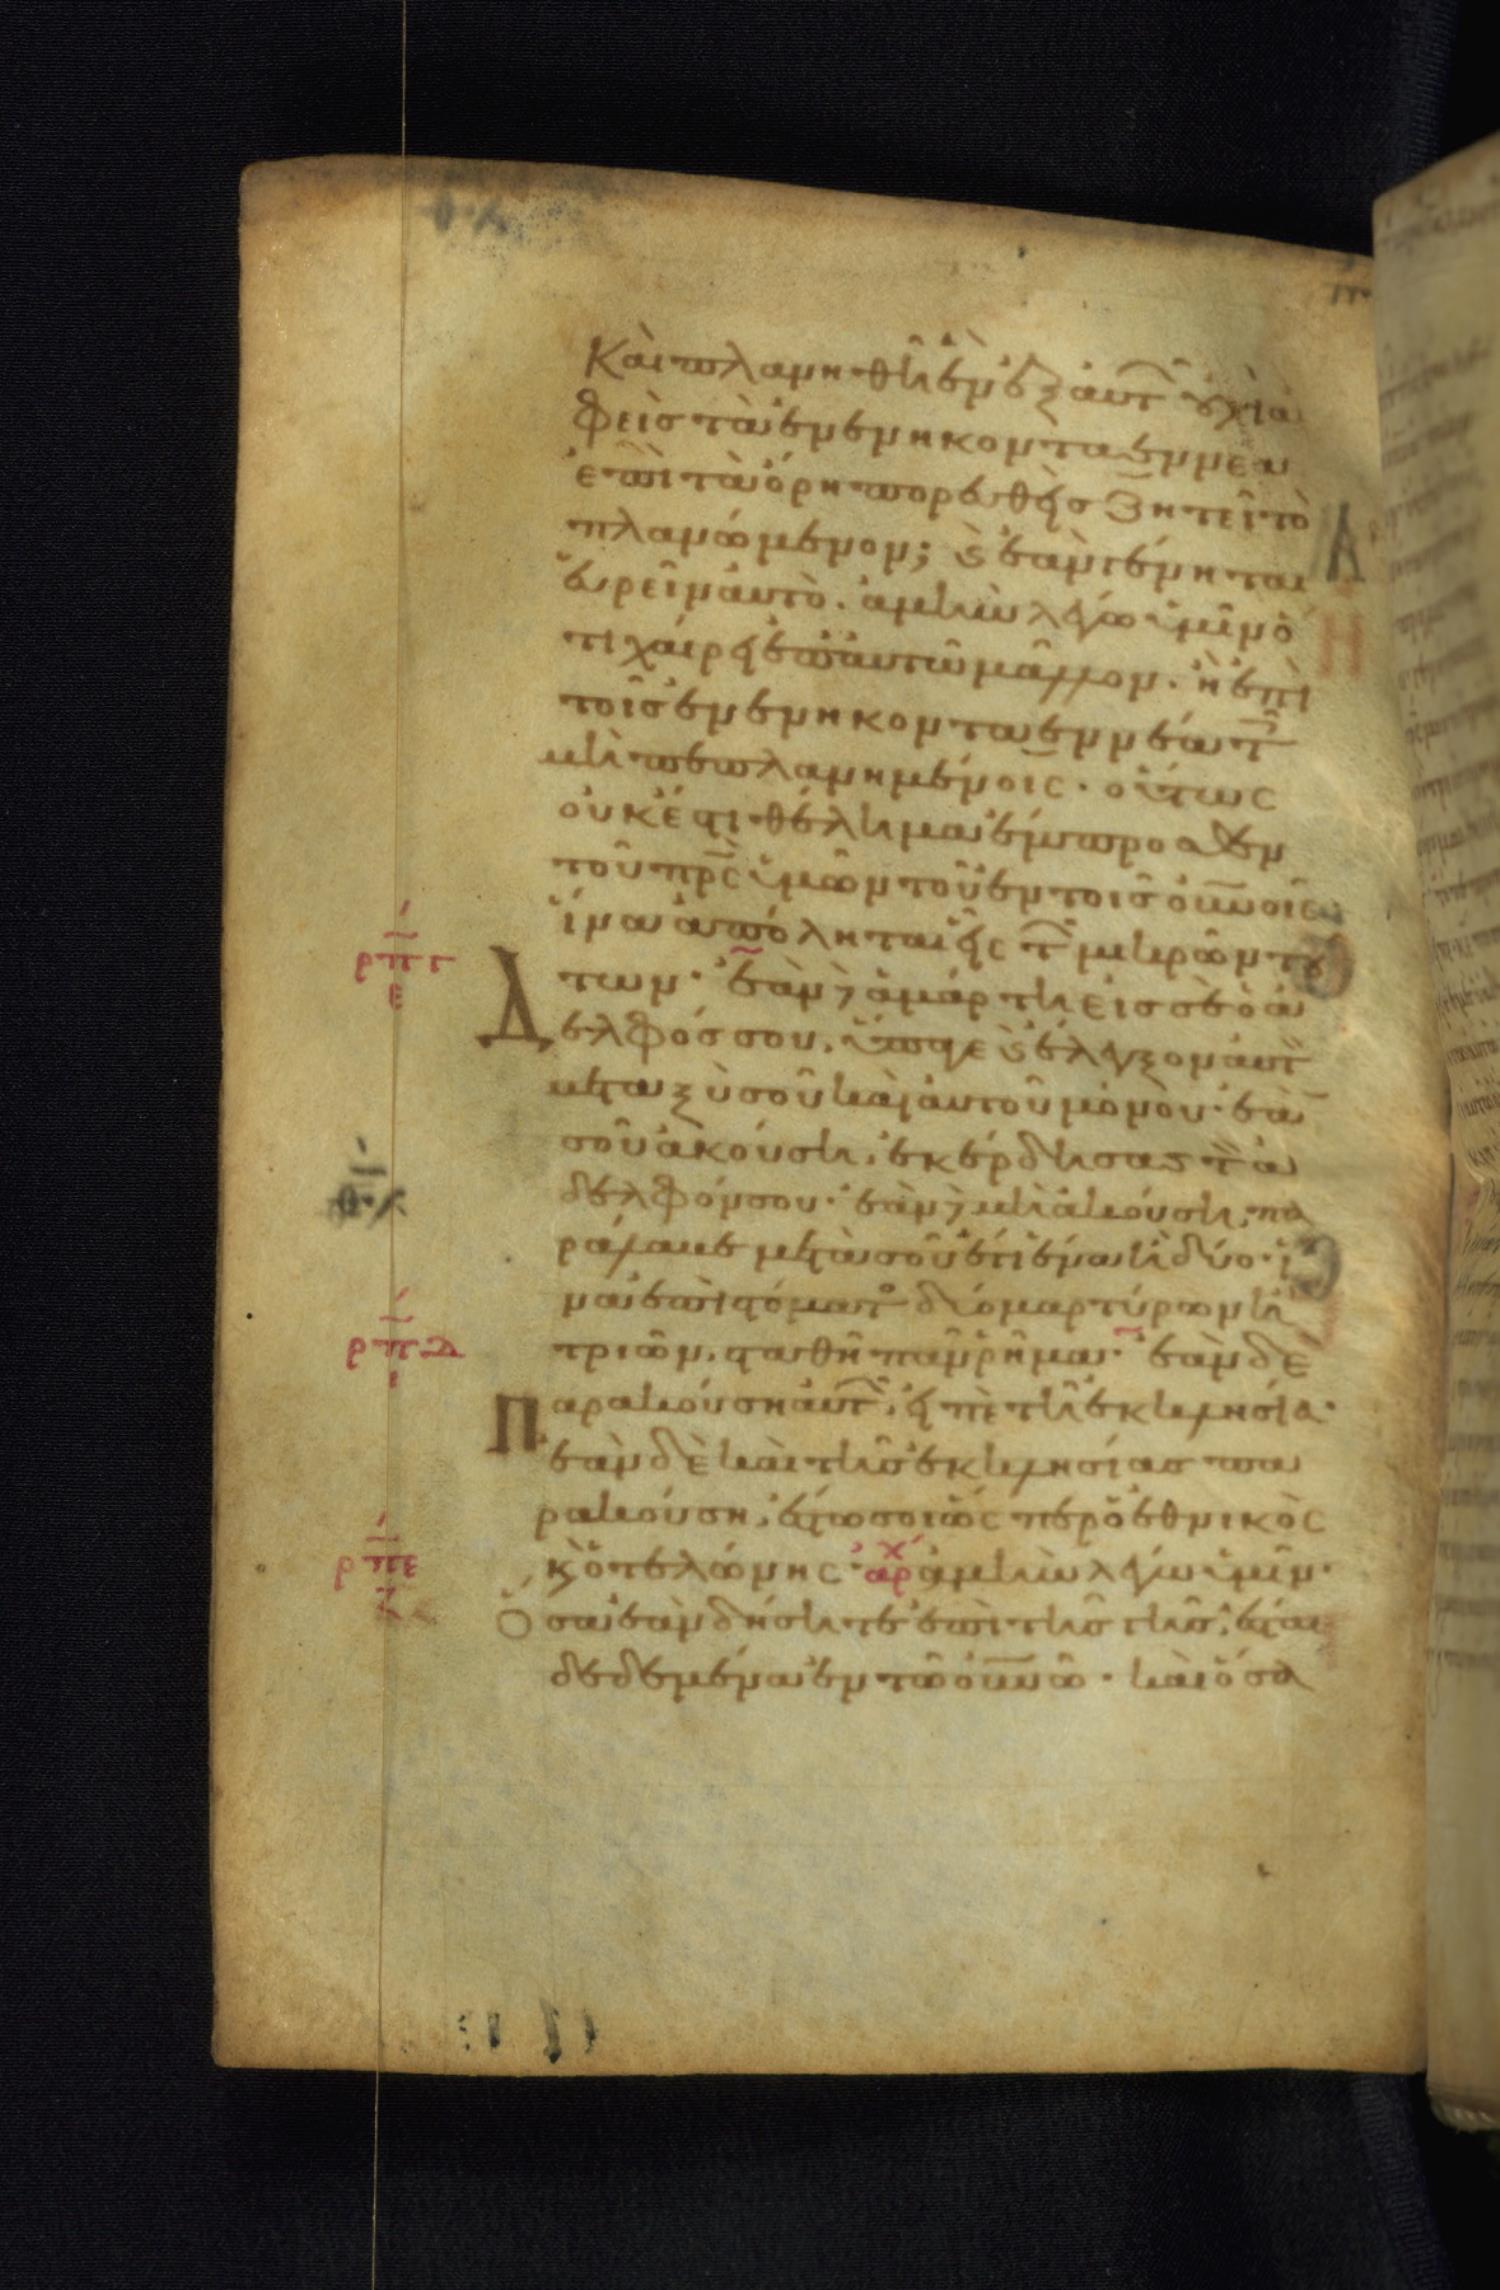 Καὶ πλανηθῆ ἓν ἐξ αὐτῶν οὐχὶ ἀ
φεὶς τὰ ἐνενηκονταεννέα
ἐπὶ τὰ ὄρη πορευθεὶς ζητεῖ τὸ
πλανώμενον; ϗ ἐὰν γένηται
εὑρεῖν αὐτὸ. ἀμὴν λέγω ὑμῖν ὅ
τι χαίρει ἐπ αὐτῶ μᾶλλον. ἢ ἐπὶ
τοῖς ἐνενηκονταεννέα τοῖς
μὴ πεπλανημένοις. οὕτως
οὐκ ἔστι θέλημα ἔμπροσθεν
τοῦ πρς ὑμῶν τοῦ ἐν τοῖς οὐνοῖς
ἵνα ἀπόληται εἷς τῶν μικρῶν του
των. ἐὰν δὲ ἁμάρτη εἰς σὲ ὁ ἀ
Δελφός σου, ὕπαγε ϗ ἔλεγξον αὐτὸν
μεταξὺ σοῦ καὶ αὐτοῦ μόνου. ἐάν
σου ἀκούση, ἐκέρδησας τὸν ἀ
δελφόν σου. ἐὰν δὲ μὴ ἀκούση, πα
ράλαβε μετὰ σοῦ ἔτι ἕνα ἢ δύο. ἵ
να ἐπὶ στόματος δύο μαρτύρων ἢ
τριῶν, σταθῆ πᾶν ῥῆμα. ἐὰν δὲ
Παρακούση αὐτῶν, εἰπὲ τῆ ἐκκλησία.
ἐὰν δὲ καὶ τῆς ἐκκλησίας πα
ρακούση, ἔστω σοι ὥσπερ ὁ ἐθνικὸς
ϗ ὁ τελώνης. ἀρχ ἀμὴν λέγω ὑμῖν.
Ὅσα ἐὰν δήσητε ἐπὶ τῆς γῆς, ἔσται
δεδεμένα ἐν τῶ οὐνῶ. καὶ ὅσα